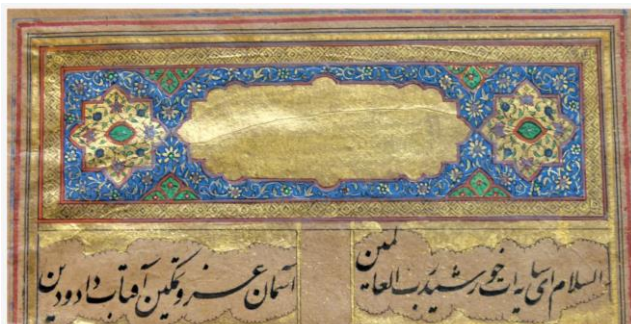 السلام ای سایه ات خورشید رب العالمین
آسمان عز و تمکین آفتاب داد و دین